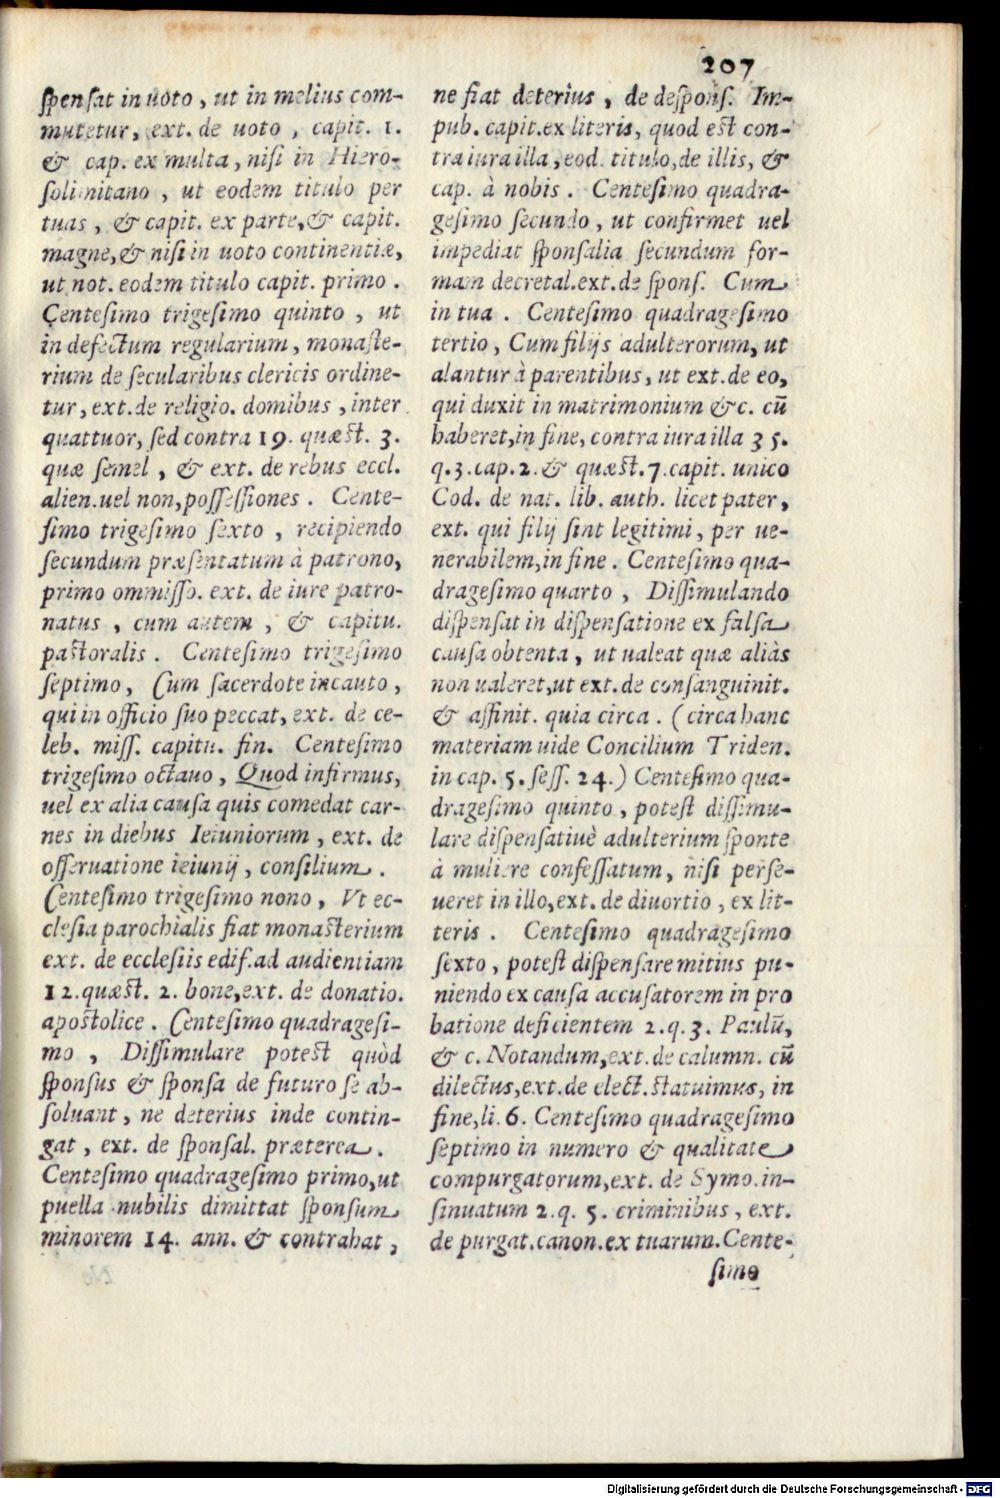 207
spensat in uoto, ut in melius com-
mutetur, ext. de uoto, capit. 1.
& cap. ex multa, nisi in Hiero-
solimitano, ut eodem titulo per
tuas, & capit. ex parte, & capit.
magne, & nisi in uoto continentiæ,
ut not. eodem titulo capit. primo.
Centesimo trigesimo quinto, ut
in defectum regularium, monaste-
rium de secularibus clericis ordine-
tur, ext. de religio. domibus, inter
quattuor, sed contra 19. quæst. 3.
quæ semel, & ext. de rebus eccl.
alien. uel non, possessiones. Cente-
simo trigesimo sexto, recipiendo
secundum præsentatum à patrono,
primo ommisso. ext. de iure patro-
natus, cum autem, & capitu.
pastoralis. Centesimo trigesimo
septimo, Cum sacerdote incauto,
qui in officio suo peccat, ext. de ce-
leb. miss. capitu. fin. Centesimo
trigesimo octauo, Quod infirmus,
uel ex alia causa quis comedat car-
nes in diebus Ieiuniorum, ext. de
osseruatione ieiunij, consilium.
Centesimo trigesimo nono, Vt ec-
clesia parochialis fiat monasterium
ext. de ecclesiis edif. ad audientiam
12. quæst. 2. bone, ext. de donatio.
apostolice. Centesimo quadragesi-
mo, Dissimulare potest quòd
sponsus & sponsa de futuro se ab-
soluant, ne deterius inde contin-
gat, ext. de sponsal. præterea.
Centesimo quadragesimo primo, ut
puella nubilis dimittat sponsum
minorem 14. ann. & contrahat,
ne fiat deterius, de despons. Im-
pub. capit. ex literis, quod est con-
tra iura illa, eod. titulo, de illis, &
cap. à nobis. Centesimo quadra-
gesimo secundo, ut confirmet uel
impediat sponsalia secundum for-
mam decretal. ext. de spons. Cum
in tua. Centesimo quadragesimo
tertio, Cum filijs adulterorum, ut
alantur à parentibus, ut ext. de eo,
qui duxit in matrimonium &c. cũ
haberet, in fine, contra iura illa 35.
q. 3. cap. 2. & quæst. 7. capit. unico
Cod. de nat. lib. auth. licet pater,
ext. qui filij sint legitimi, per ue-
nerabilem, in fine. Centesimo qua-
dragesimo quarto, Dissimulando
dispensat in dispensatione ex falsa
causa obtenta, ut ualeat quæ aliàs
non ualeret, ut ext. de consanguinit.
& affinit. quia circa. (circa hanc
materiam uide Concilium Triden.
in cap. 5. sess. 24.) Centesimo qua-
dragesimo quinto, potest dissimu-
lare dispensatiuè adulterium sponte
à muliere confessatum, nisi perse-
ueret in illo, ext. de diuortio, ex lit-
teris. Centesimo quadragesimo
sexto, potest dispensare mitius pu-
niendo ex causa accusatorem in pro
batione deficientem 2. q. 3. Paulũ,
& c. Notandum, ext. de calumn. cũ
dilectus, ext. de elect. statuimus, in
fine, li. 6. Centesimo quadragesimo
septimo in numero & qualitate
compurgatorum, ext. de Symo. in-
sinuatum 2. q. 5. criminibus, ext.
de purgat. canon. ex tuarum. Cente-
simo
Digitalisierung gefördert durch die Deutsche Forschungsgemeinschaft - DFG